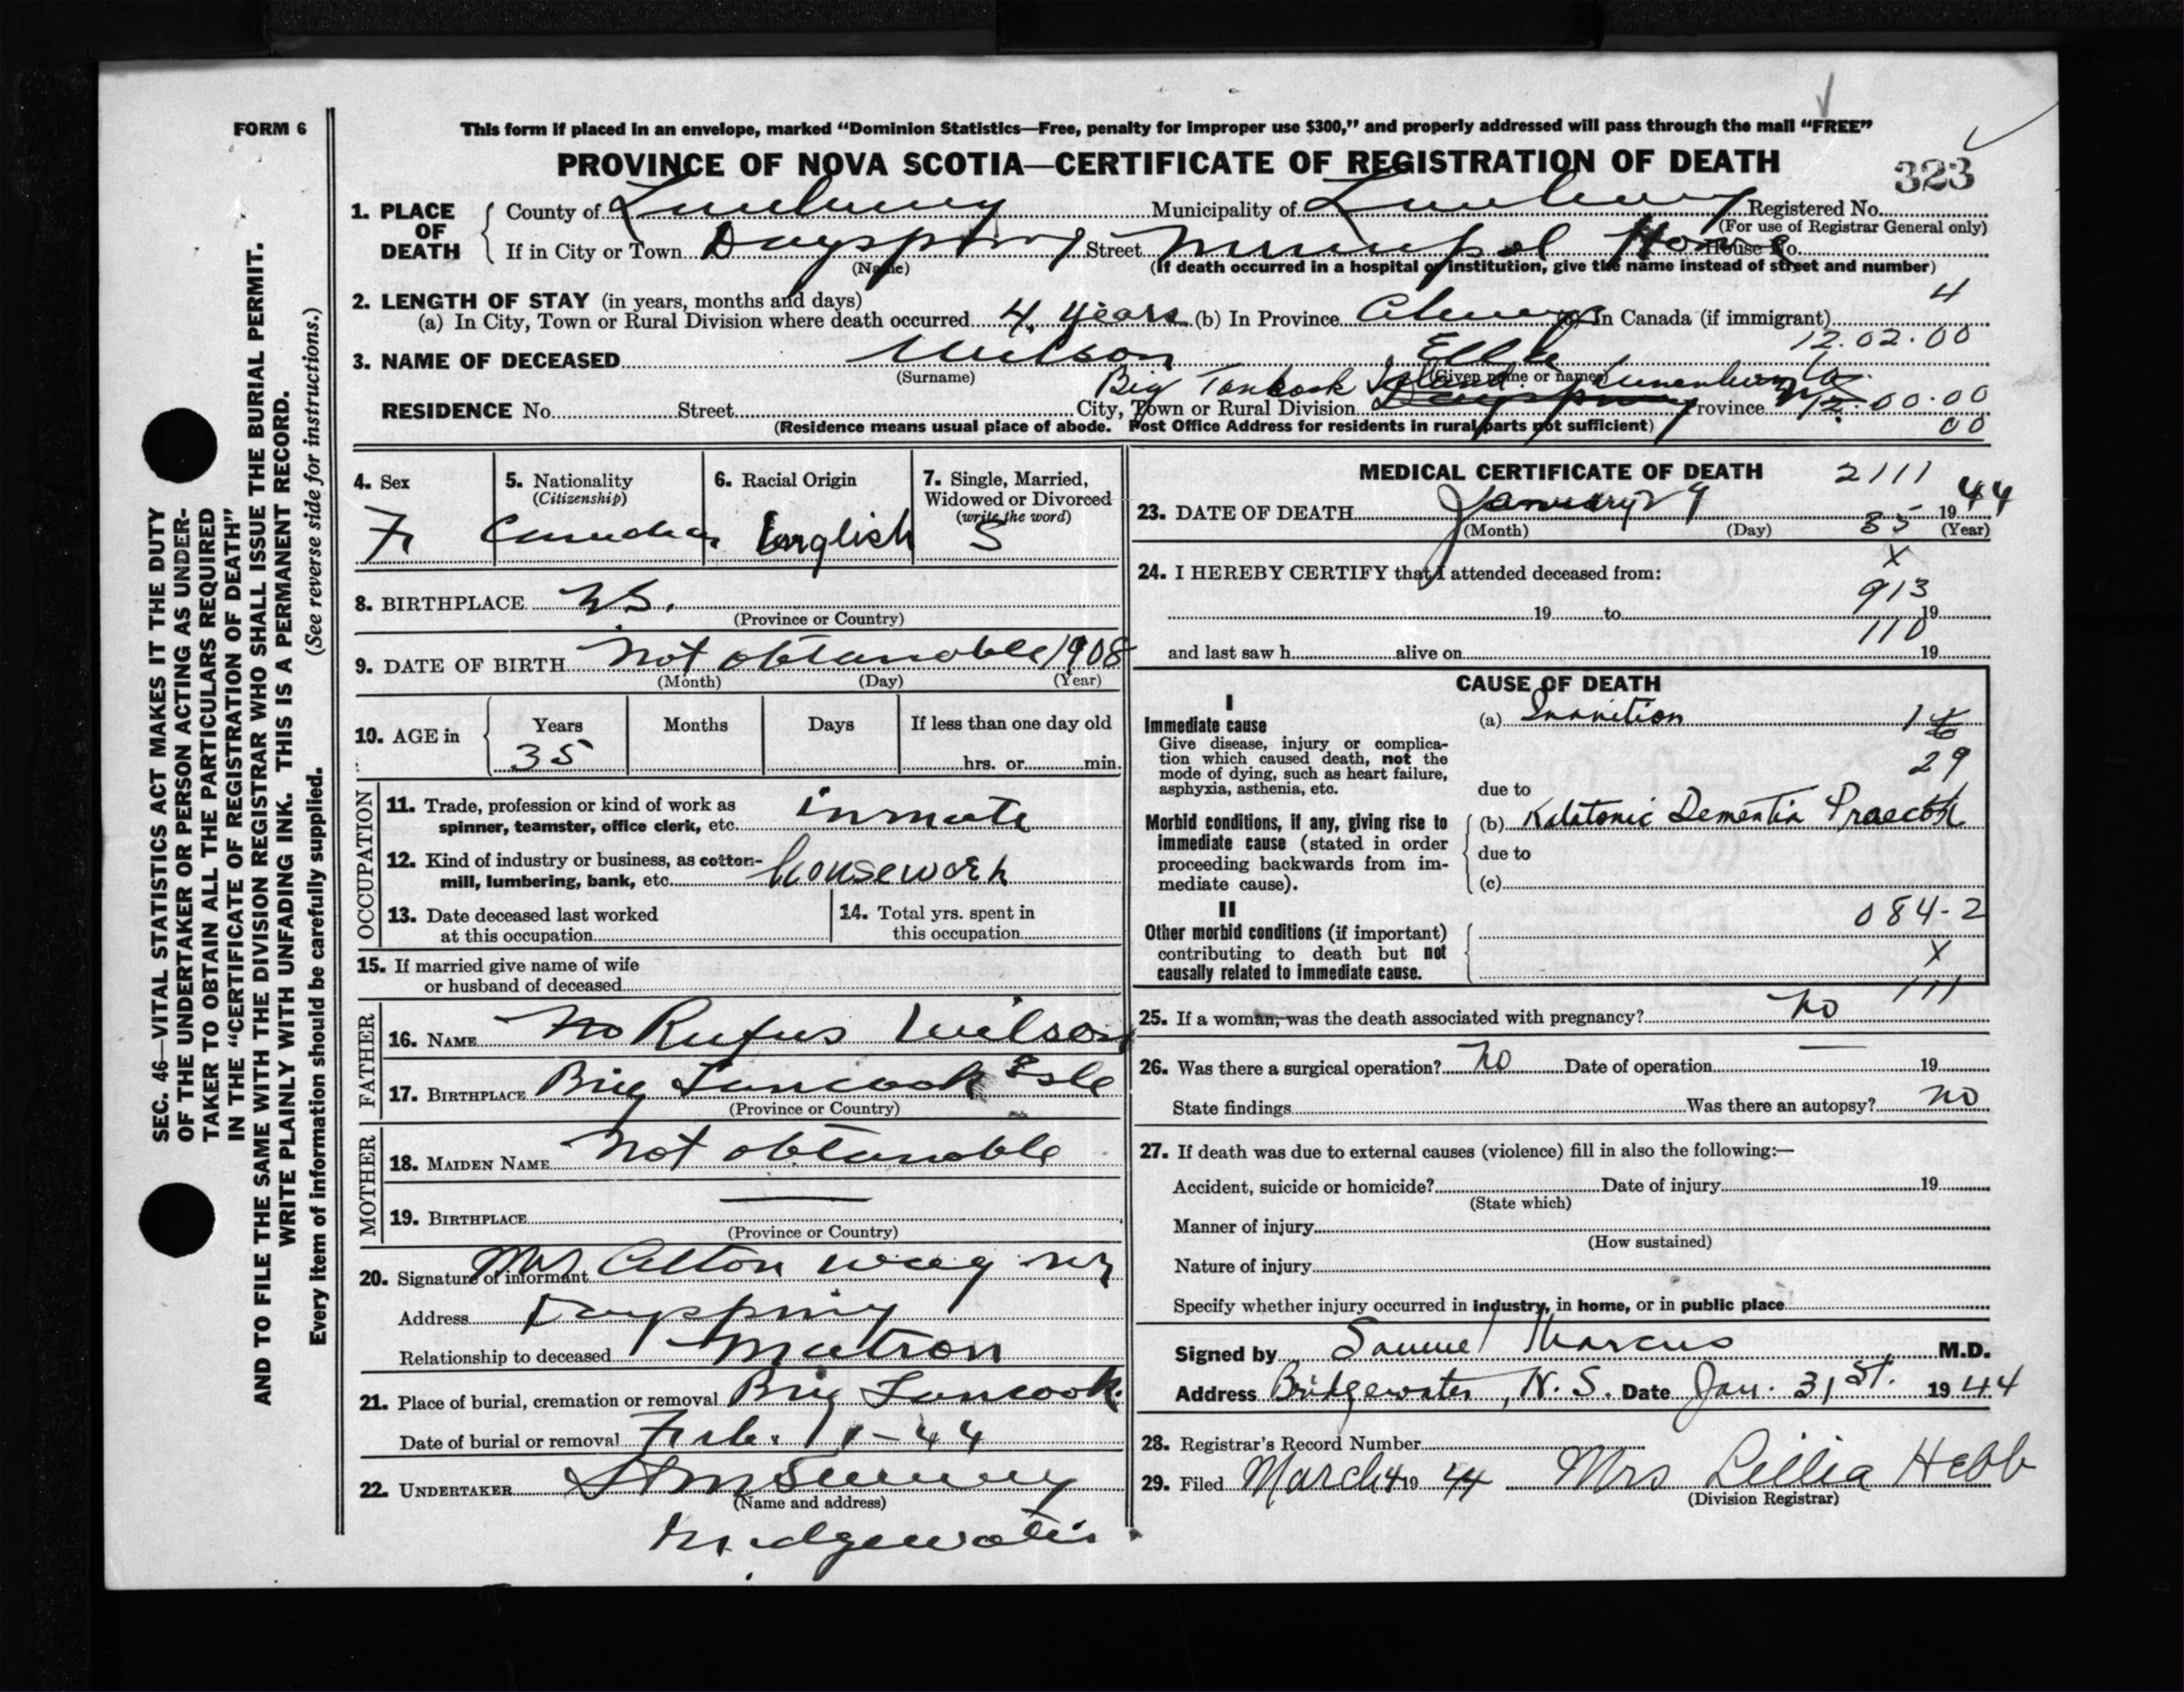 FORM 6
This form if placed in an envelope, marked “Dominion Statistics—Free, penalty for improper use $300,” and properly addressed will pass through the mail “FREE”
PROVINCE OF NOVA SCOTIA—CERTIFICATE OF REGISTRATION OF DEATH
323
1. PLACE OF DEATH
County of Lunenburg Municipality of Lunenburg Registered No.
(For use of Registrar General only)
If in City or Town Dayspring Street Municipal Home House No.
(Name) (If death occurred in a hospital or institution, give the name instead of street and number)
2. LENGTH OF STAY (in years, months and days) 4
(a) In City, Town or Rural Division where death occurred 4 years (b) In Province Always (c) In Canada (if immigrant)
12.02.00
3. NAME OF DECEASED Wilson
(Surname) (Given name or names)
Big Tancook Island Lunenburg Co.
RESIDENCE No. Street City, Town or Rural Division Dayspring Province NS 12.00.00
(Residence means usual place of abode. Post Office Address for residents in rural parts not sufficient) 00
4. Sex F
5. Nationality (Citizenship) Canadian
6. Racial Origin English
7. Single, Married, Widowed or Divorced (write the word) S
8. BIRTHPLACE N.S.
(Province or Country)
9. DATE OF BIRTH Not obtanable 1908
(Month) (Day) (Year)
10. AGE in Years 35 Months Days If less than one day old
hrs. or min.
OCCUPATION
11. Trade, profession or kind of work as spinner, teamster, office clerk, etc. inmate
12. Kind of industry or business, as cotton-mill, lumbering, bank, etc. housework
13. Date deceased last worked at this occupation
14. Total yrs. spent in this occupation
15. If married give name of wife or husband of deceased
FATHER
16. NAME No Rufus Wilson
17. BIRTHPLACE Big Tancook Isle
(Province or Country)
MOTHER
18. MAIDEN NAME Not obtanable
19. BIRTHPLACE —
(Province or Country)
20. Signature of informant Mrs
Address Dayspring
Relationship to deceased Matron
21. Place of burial, cremation or removal Big Tancook
Date of burial or removal Feb. 1 1-44
22. UNDERTAKER
(Name and address)
Bridgewater
MEDICAL CERTIFICATE OF DEATH 2111
23. DATE OF DEATH January 29 1944
(Month) (Day) (Year)
35
X
24. I HEREBY CERTIFY that I attended deceased from:
913
19 to 19
110
and last saw h alive on 19
CAUSE OF DEATH
I
Immediate cause
Give disease, injury or complication which caused death, not the mode of dying, such as heart failure, asphyxia, asthenia, etc.
(a) Inanition
29
due to
Morbid conditions, if any, giving rise to immediate cause (stated in order proceeding backwards from immediate cause).
(b) Katatonic Dementia Praecox
due to
(c)
084-2
II
Other morbid conditions (if important) contributing to death but not causally related to immediate cause.
X
111
25. If a woman, was the death associated with pregnancy? no
26. Was there a surgical operation? no Date of operation — 19
State findings Was there an autopsy? no
27. If death was due to external causes (violence) fill in also the following:—
Accident, suicide or homicide? Date of injury 19
(State which)
Manner of injury
(How sustained)
Nature of injury
Specify whether injury occurred in industry, in home, or in public place
Signed by Samuel Marcus M.D.
Address Bridgewater, N.S. Date Jan. 31st. 1944
28. Registrar’s Record Number
29. Filed March 4 1944 Mrs Lillia Hebb
(Division Registrar)
SEC. 46—VITAL STATISTICS ACT MAKES IT THE DUTY
OF THE UNDERTAKER OR PERSON ACTING AS UNDER-
TAKER TO OBTAIN ALL THE PARTICULARS REQUIRED
IN THE “CERTIFICATE OF REGISTRATION OF DEATH”
AND TO FILE THE SAME WITH THE DIVISION REGISTRAR WHO SHALL ISSUE THE BURIAL PERMIT.
WRITE PLAINLY WITH UNFADING INK. THIS IS A PERMANENT RECORD.
Every item of information should be carefully supplied. (See reverse side for instructions.)